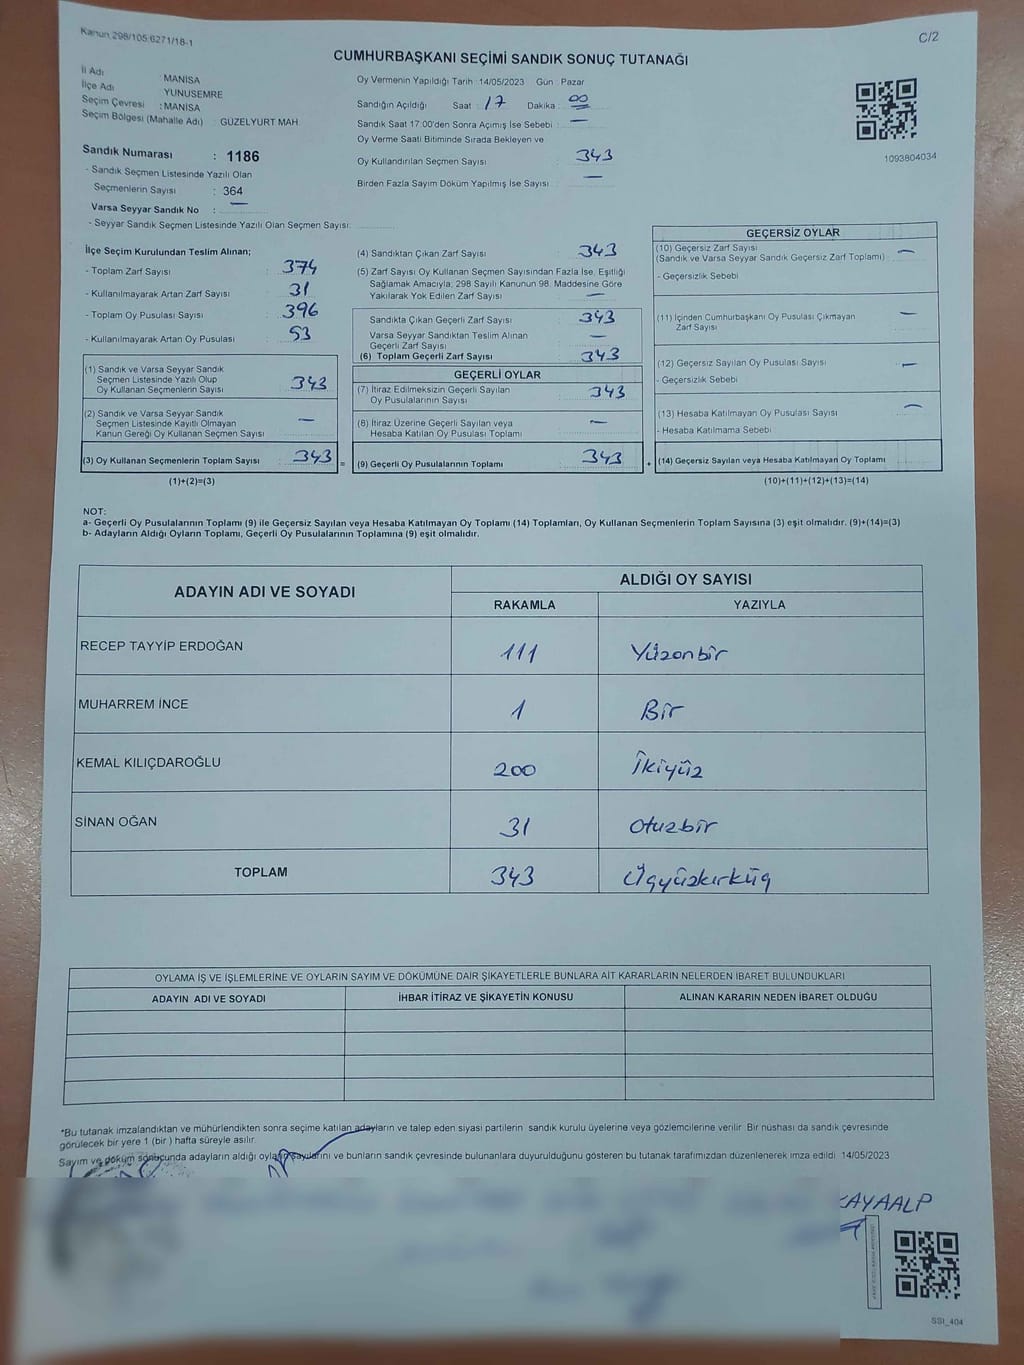 Kanun 298/105.6271/18-1
C/2
CUMHURBAŞKANI SEÇİMİ SANDIK SONUÇ TUTANAĞI
İl Adı : MANİSA
İlçe Adı : YUNUSEMRE
Seçim Çevresi : MANİSA
Seçim Bölgesi (Mahalle Adı) : GÜZELYURT MAH.
Sandık Numarası : 1186
- Sandık Seçmen Listesinde Yazılı Olan
Seçmenlerin Sayısı : 364
Varsa Seyyar Sandık No : —
- Seyyar Sandık Seçmen Listesinde Yazılı Olan Seçmen Sayısı:
Oy Vermenin Yapıldığı Tarih : 14/05/2023 Gün : Pazar
Sandığın Açıldığı Saat : 17 Dakika : 00
Sandık Saat 17:00'den Sonra Açımış İse Sebebi : —
Oy Verme Saati Bitiminde Sırada Bekleyen ve
Oy Kullandırılan Seçmen Sayısı : 343
Birden Fazla Sayım Döküm Yapılmış İse Sayısı : —
1093804034
İlçe Seçim Kurulundan Teslim Alınan;
- Toplam Zarf Sayısı : 374
- Kullanılmayarak Artan Zarf Sayısı : 31
- Toplam Oy Pusulası Sayısı : 396
- Kullanılmayarak Artan Oy Pusulası : 53
(1) Sandık ve Varsa Seyyar Sandık
Seçmen Listesinde Yazılı Olup
Oy Kullanan Seçmenlerin Sayısı : 343
(2) Sandık ve Varsa Seyyar Sandık
Seçmen Listesinde Kayıtlı Olmayan
Kanun Gereği Oy Kullanan Seçmen Sayısı : —
(3) Oy Kullanan Seçmenlerin Toplam Sayısı : 343 =
(1)+(2)=(3)
(4) Sandıktan Çıkan Zarf Sayısı : 343
(5) Zarf Sayısı Oy Kullanan Seçmen Sayısından Fazla İse, Eşitliği
Sağlamak Amacıyla; 298 Sayılı Kanunun 98. Maddesine Göre
Yakılarak Yok Edilen Zarf Sayısı : —
Sandıkta Çıkan Geçerli Zarf Sayısı : 343
Varsa Seyyar Sandıktan Teslim Alınan
Geçerli Zarf Sayısı : —
(6) Toplam Geçerli Zarf Sayısı : 343
GEÇERLİ OYLAR
(7) İtiraz Edilmeksizin Geçerli Sayılan
Oy Pusulalarının Sayısı : 343
(8) İtiraz Üzerine Geçerli Sayılan veya
Hesaba Katılan Oy Pusulası Toplamı : —
(9) Geçerli Oy Pusulalarının Toplamı : 343 +
GEÇERSİZ OYLAR
(10) Geçersiz Zarf Sayısı
(Sandık ve Varsa Seyyar Sandık Geçersiz Zarf Toplamı) : —
- Geçersizlik Sebebi
(11) İçinden Cumhurbaşkanı Oy Pusulası Çıkmayan
Zarf Sayısı : —
(12) Geçersiz Sayılan Oy Pusulası Sayısı : —
- Geçersizlik Sebebi
(13) Hesaba Katılmayan Oy Pusulası Sayısı : —
- Hesaba Katılmama Sebebi
(14) Geçersiz Sayılan veya Hesaba Katılmayan Oy Toplamı
(10)+(11)+(12)+(13)=(14)
NOT:
a- Geçerli Oy Pusulalarının Toplamı (9) ile Geçersiz Sayılan veya Hesaba Katılmayan Oy Toplamı (14) Toplamları, Oy Kullanan Seçmenlerin Toplam Sayısına (3) eşit olmalıdır. (9)+(14)=(3)
b- Adayların Aldığı Oyların Toplamı, Geçerli Oy Pusulalarının Toplamına (9) eşit olmalıdır.
ADAYIN ADI VE SOYADI
ALDIĞI OY SAYISI
RAKAMLA YAZIYLA
RECEP TAYYİP ERDOĞAN 111 Yüzonbir
MUHARREM İNCE 1 Bir
KEMAL KILIÇDAROĞLU 200 İkiyüz
SİNAN OĞAN 31 Otuzbir
TOPLAM 343 Üçyüzkırküç
OYLAMA İŞ VE İŞLEMLERİNE VE OYLARIN SAYIM VE DÖKÜMÜNE DAİR ŞİKAYETLERLE BUNLARA AİT KARARLARIN NELERDEN İBARET BULUNDUKLARI
ADAYIN ADI VE SOYADI İHBAR İTİRAZ VE ŞİKAYETİN KONUSU ALINAN KARARIN NEDEN İBARET OLDUĞU
*Bu tutanak imzalandıktan ve mühürlendikten sonra seçime katılan adayların ve talep eden siyasi partilerin sandık kurulu üyelerine veya gözlemcilerine verilir. Bir nüshası da sandık çevresinde
görülecek bir yere 1 (bir ) hafta süreyle asılır.
Sayım ve döküm sonucunda adayların aldığı oyların sayılarını ve bunların sandık çevresinde bulunanlara duyurulduğunu gösteren bu tutanak tarafımızdan düzenlenerek imza edildi. 14/05/2023
KAYAALP
SSI_404